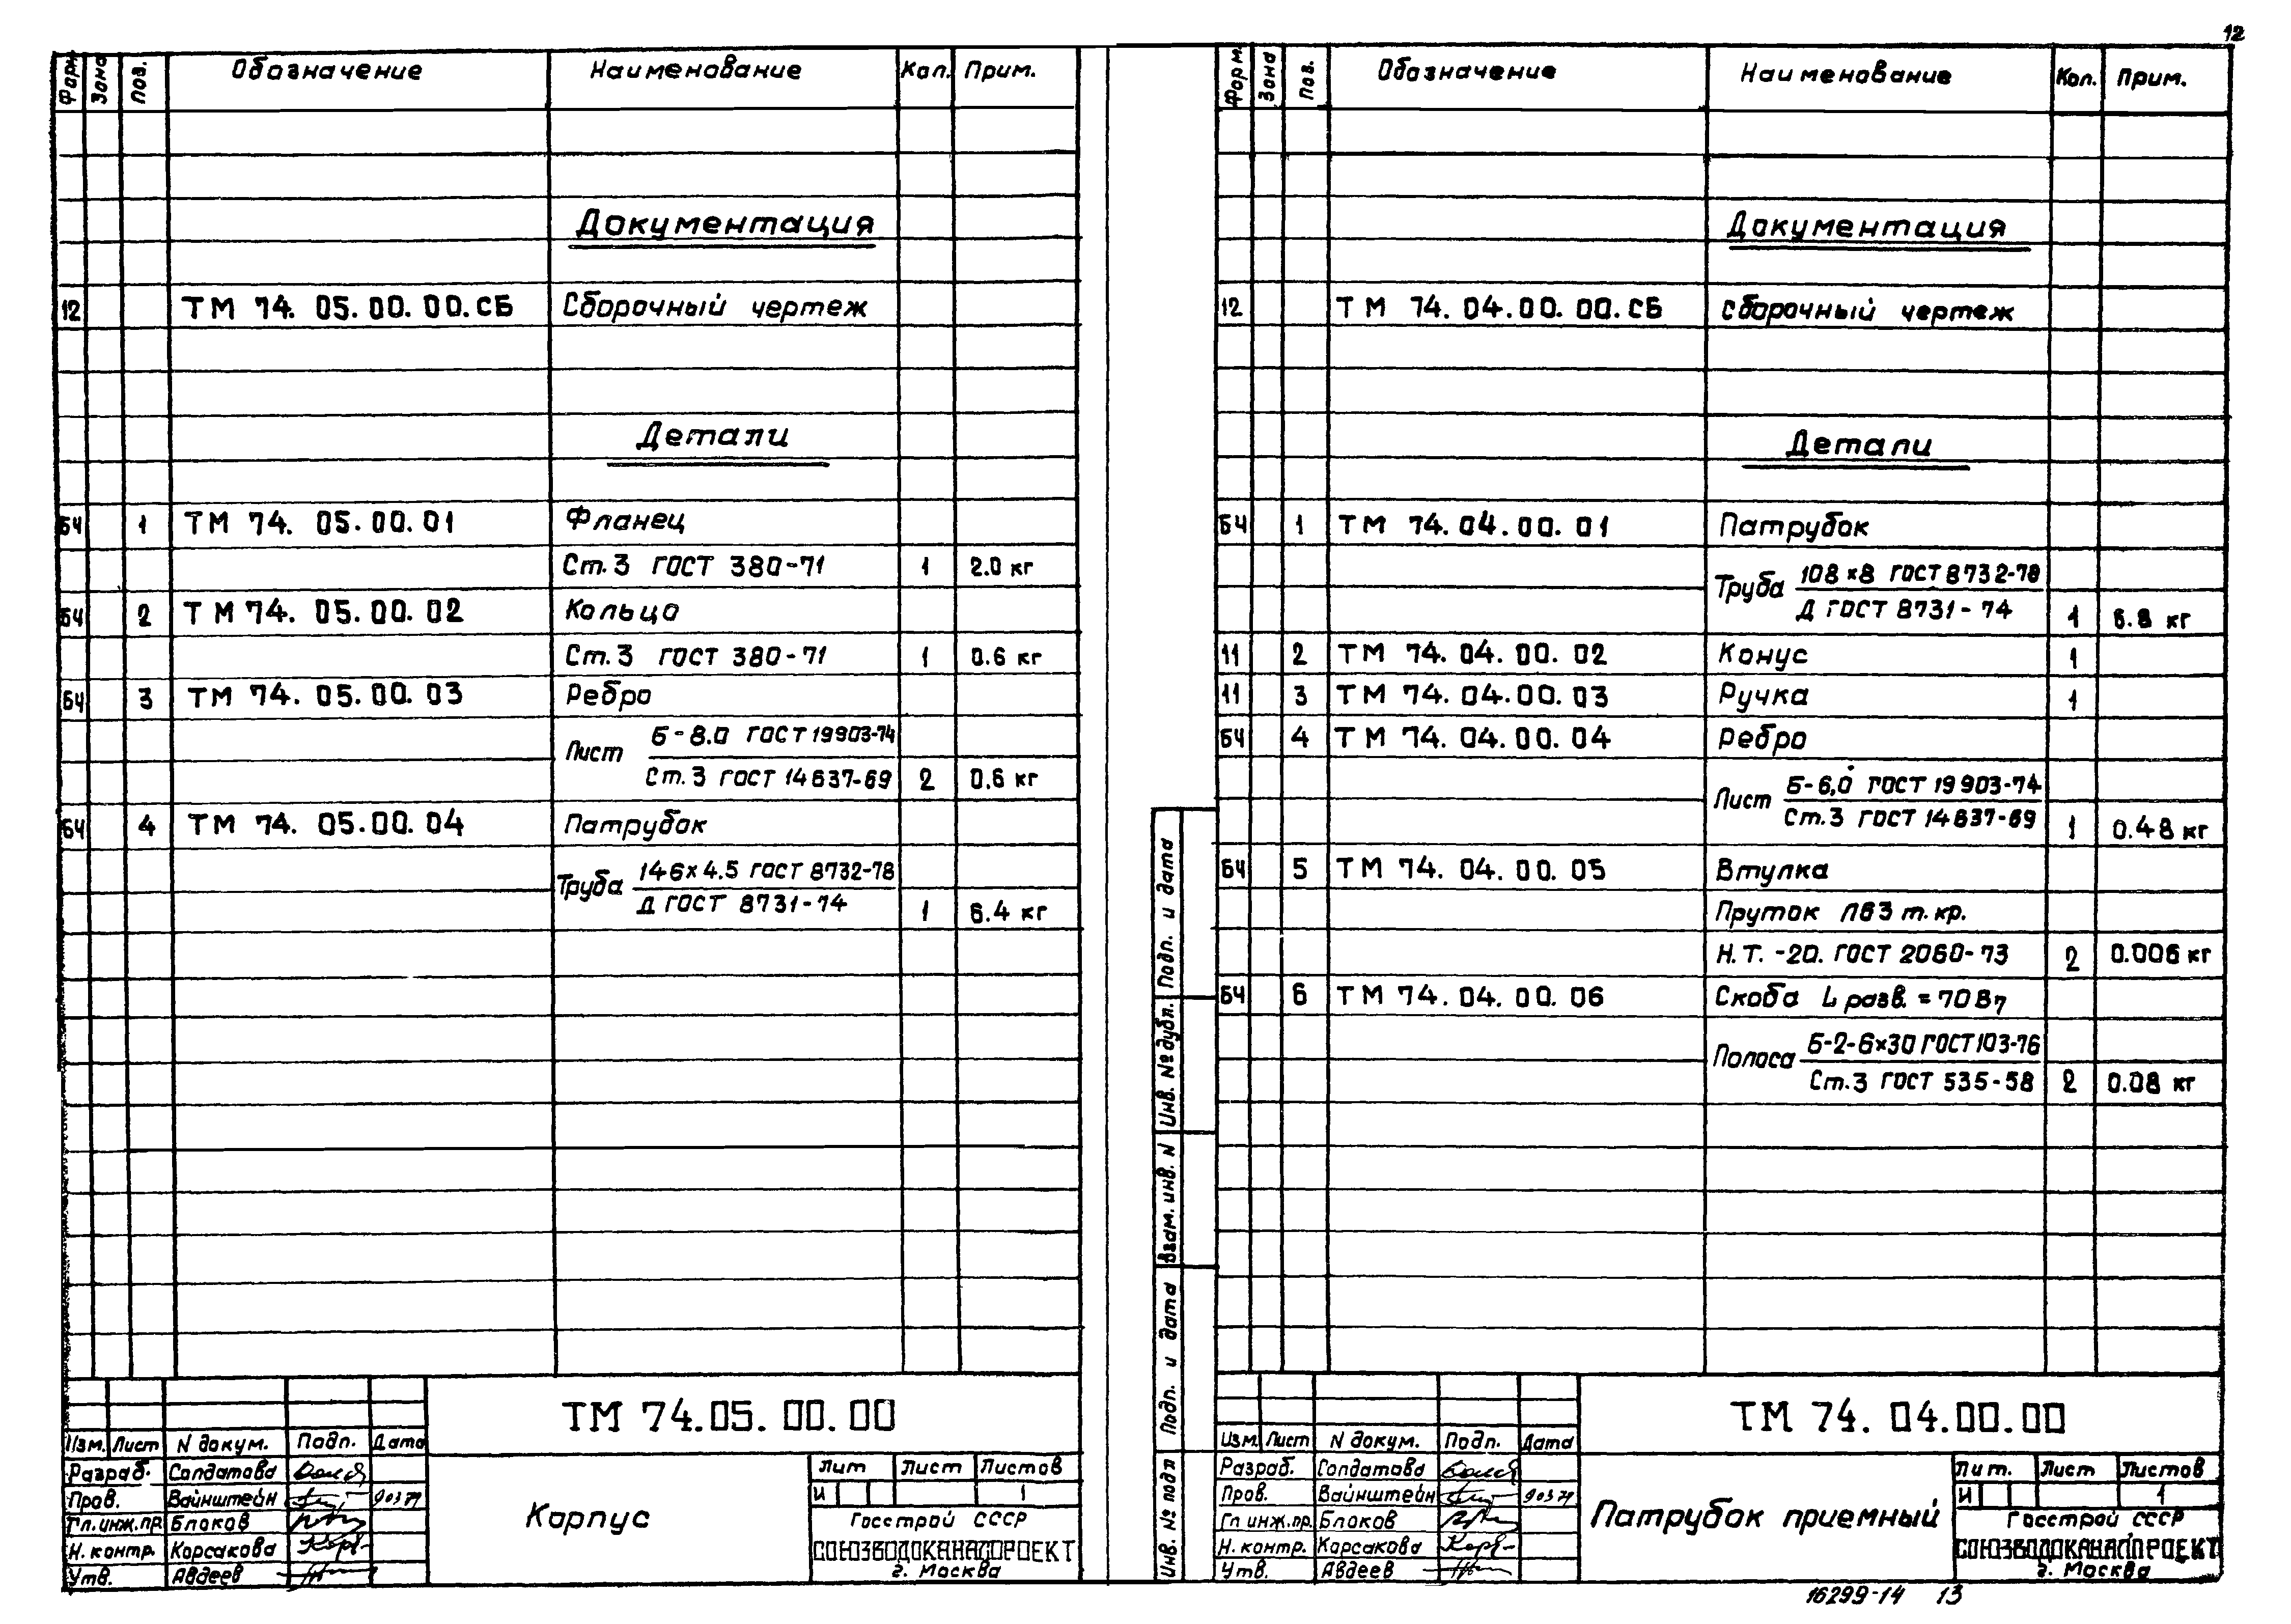 12
Форм. Зона Поз. Обозначение Наименование Кол. Прим.
Документация
12 ТМ 74. 05. 00. 00. СБ Сборочный чертеж
Детали
БЧ 1 ТМ 74. 05. 00. 01 Фланец
Ст. 3 ГОСТ 380-71 1 2.0 кг
БЧ 2 ТМ 74. 05. 00. 02 Кольцо
Ст. 3 ГОСТ 380-71 1 0.6 кг
БЧ 3 ТМ 74. 05. 00. 03 Ребро
Б-8.0 ГОСТ 19903-74
Лист
Ст. 3 ГОСТ 14637-69 2 0.6 кг
БЧ 4 ТМ 74. 05. 00. 04 Патрубок
146×4.5 ГОСТ 8732-78
Труба
Д ГОСТ 8731-74 1 6.4 кг
ТМ 74.05. 00. 00
Изм. Лист N докум. Подп. Дата
Разраб. Солдатова
Пров. Вайнштейн
Гл. инж. пр. Блоков
Н. контр. Корсакова
Утв. Авдеев
Корпус
Лит Лист Листов
И 1
Госстрой СССР
СОЮЗВОДОКАНАЛПРОЕКТ
г. Москва
Форм. Зона Поз. Обозначение Наименование Кол. Прим.
Документация
12 ТМ 74. 04. 00. 00. СБ Сборочный чертеж
Детали
БЧ 1 ТМ 74. 04. 00. 01 Патрубок
108×8 ГОСТ 8732-78
Труба
Д ГОСТ 8731-74 1 6.8 кг
11 2 ТМ 74. 04. 00. 02 Конус 1
11 3 ТМ 74. 04. 00. 03 Ручка 1
БЧ 4 ТМ 74. 04. 00. 04 Ребро
Б-6,0 ГОСТ 19903-74
Лист
Ст. 3 ГОСТ 14637-69 1 0.48 кг
БЧ 5 ТМ 74. 04. 00. 05 Втулка
Пруток Л63 т. кр.
Н. Т. -20. ГОСТ 2060-73 2 0.006 кг
БЧ 6 ТМ 74. 04. 00. 06 Скоба L разв. = 70 В7
Б-2-6×30 ГОСТ 103-76
Полоса
Ст. 3 ГОСТ 535-58 2 0.08 кг
Инв. № подл Подп. и дата Взам. инв. N Инв. № дубл. Подп. и дата
ТМ 74. 04. 00. 00
Изм. Лист N докум. Подп. Дата
Разраб. Солдатова
Пров. Вайнштейн
Гл инж. пр. Блоков
Н. контр. Корсакова
Утв. Авдеев
Патрубок приемный
Лит. Лист Листов
И 1
Госстрой СССР
СОЮЗВОДОКАНАЛПРОЕКТ
г. Москва
16299-14 13